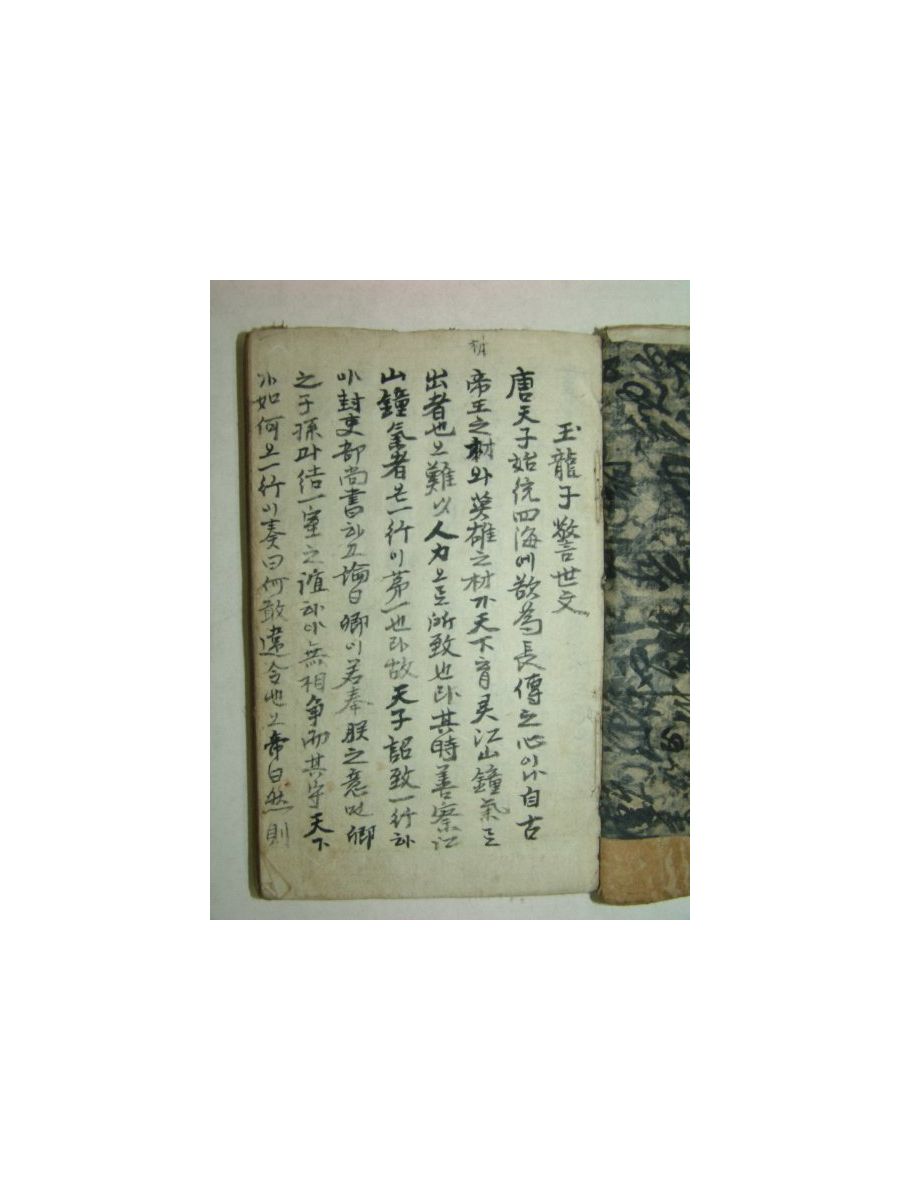 玉龍子警世文
唐天子始统四海에欲為長傳之心이나自古
帝王之材와英雄之材가天下育灵江山鐘氣로
出者也오難以人力으로所致也라其時善察江
山鐘氣者은一行이苐一也라故天子詔致一行하
야封吏部尚書하고諭曰卿이若奉朕之意면卿
之子孫과結一室之誼하야無相争而其守天下
如何오一行이奏曰何敢違令也오帝曰然則